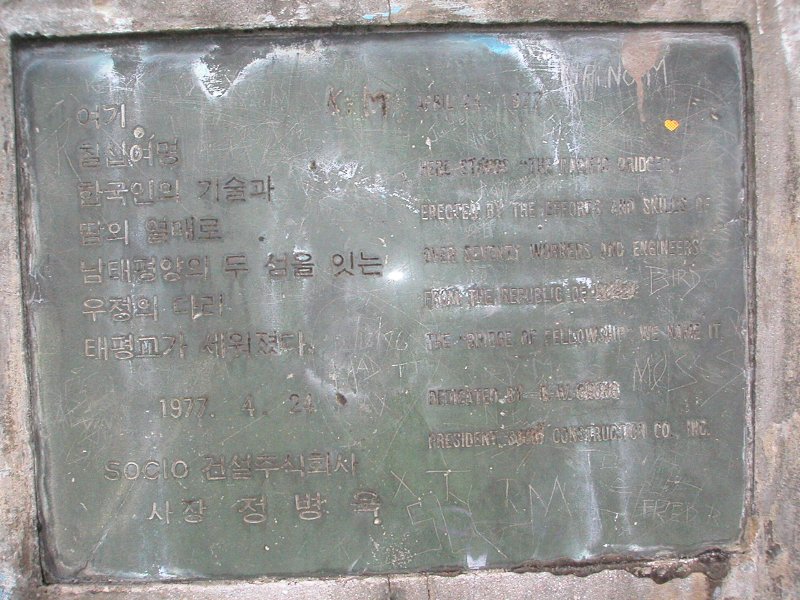 여기
칠십여명
한국인의 기술과
땀의 열매로
남태평양의 두 섬을 잇는
우정의 다리
태평교가 세워졌다.
1977. 4. 24
SOCIO 건설주식회사
사장 정병욱
K+M
24, 1977
HERE STANDS "THE BRIDGE",
ERECTED BY THE EFFORTS AND SKILLS OF
OVER SEVENTY WORKERS AND ENGINEERS
FROM THE REPUBLIC OF
THE "BRIDGE OF FELLOWSHIP" WE NAME IT
DEDICATED BY
PRESIDENT, CONSTRUCTION CO., INC.